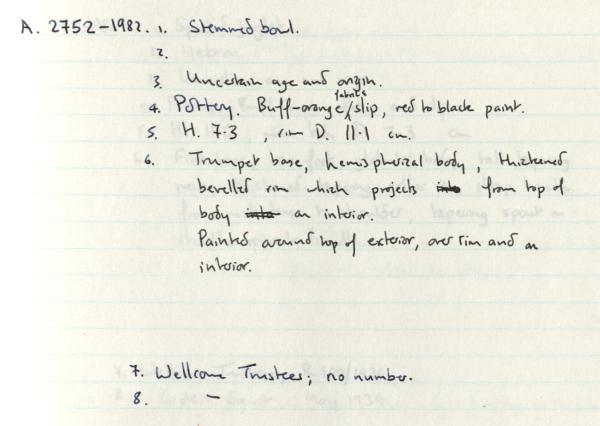 A. 2752-1982. 1. Stemmed bowl.
2.
3. Uncertain age and origin.
4. Pottery. Buff-orange fabric/slip, red to black paint.
5. H. 7.3 , rim D. 11.1 cm.
6. Trumpet base, hemispherical body, thickened
bevelled rim which projects into from top of
body into on interior.
Painted around top of exterior, over rim and on
interior.
7. Wellcome Trustees; no number.
8. –